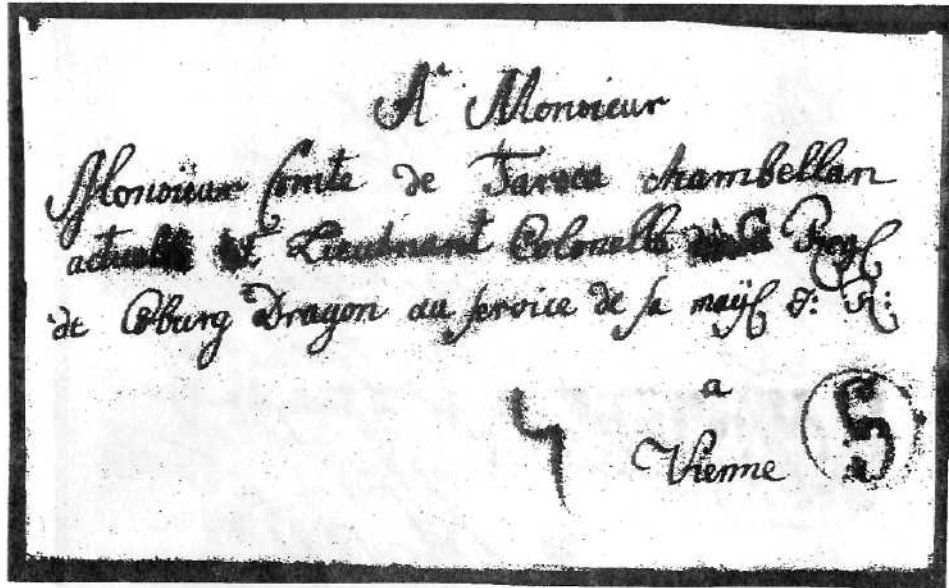 A Monsieur
Monsieur Comte de Tarocca chambellan
actuelle et Lieutnant Colonelle Reg
de Coburg Dragon au service de sa maÿ J: R:
a
4 Vienne S